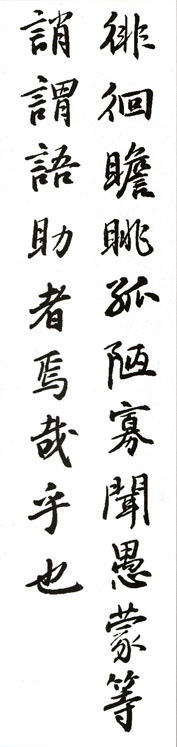 徘徊瞻眺孤陋寡聞愚蒙等
誚謂語助者焉哉乎也